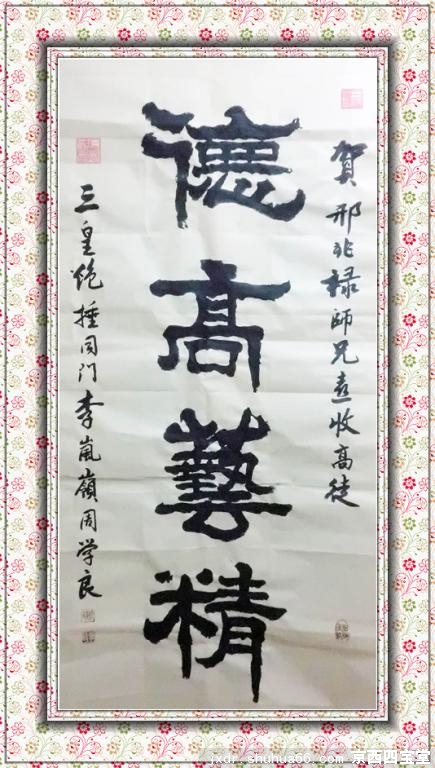 賀邢兆禄师兄喜收高徒
德高藝精
三皇炮捶同门李嵐嶺周学良
jxdr.shuhua66.com 京西四宝堂